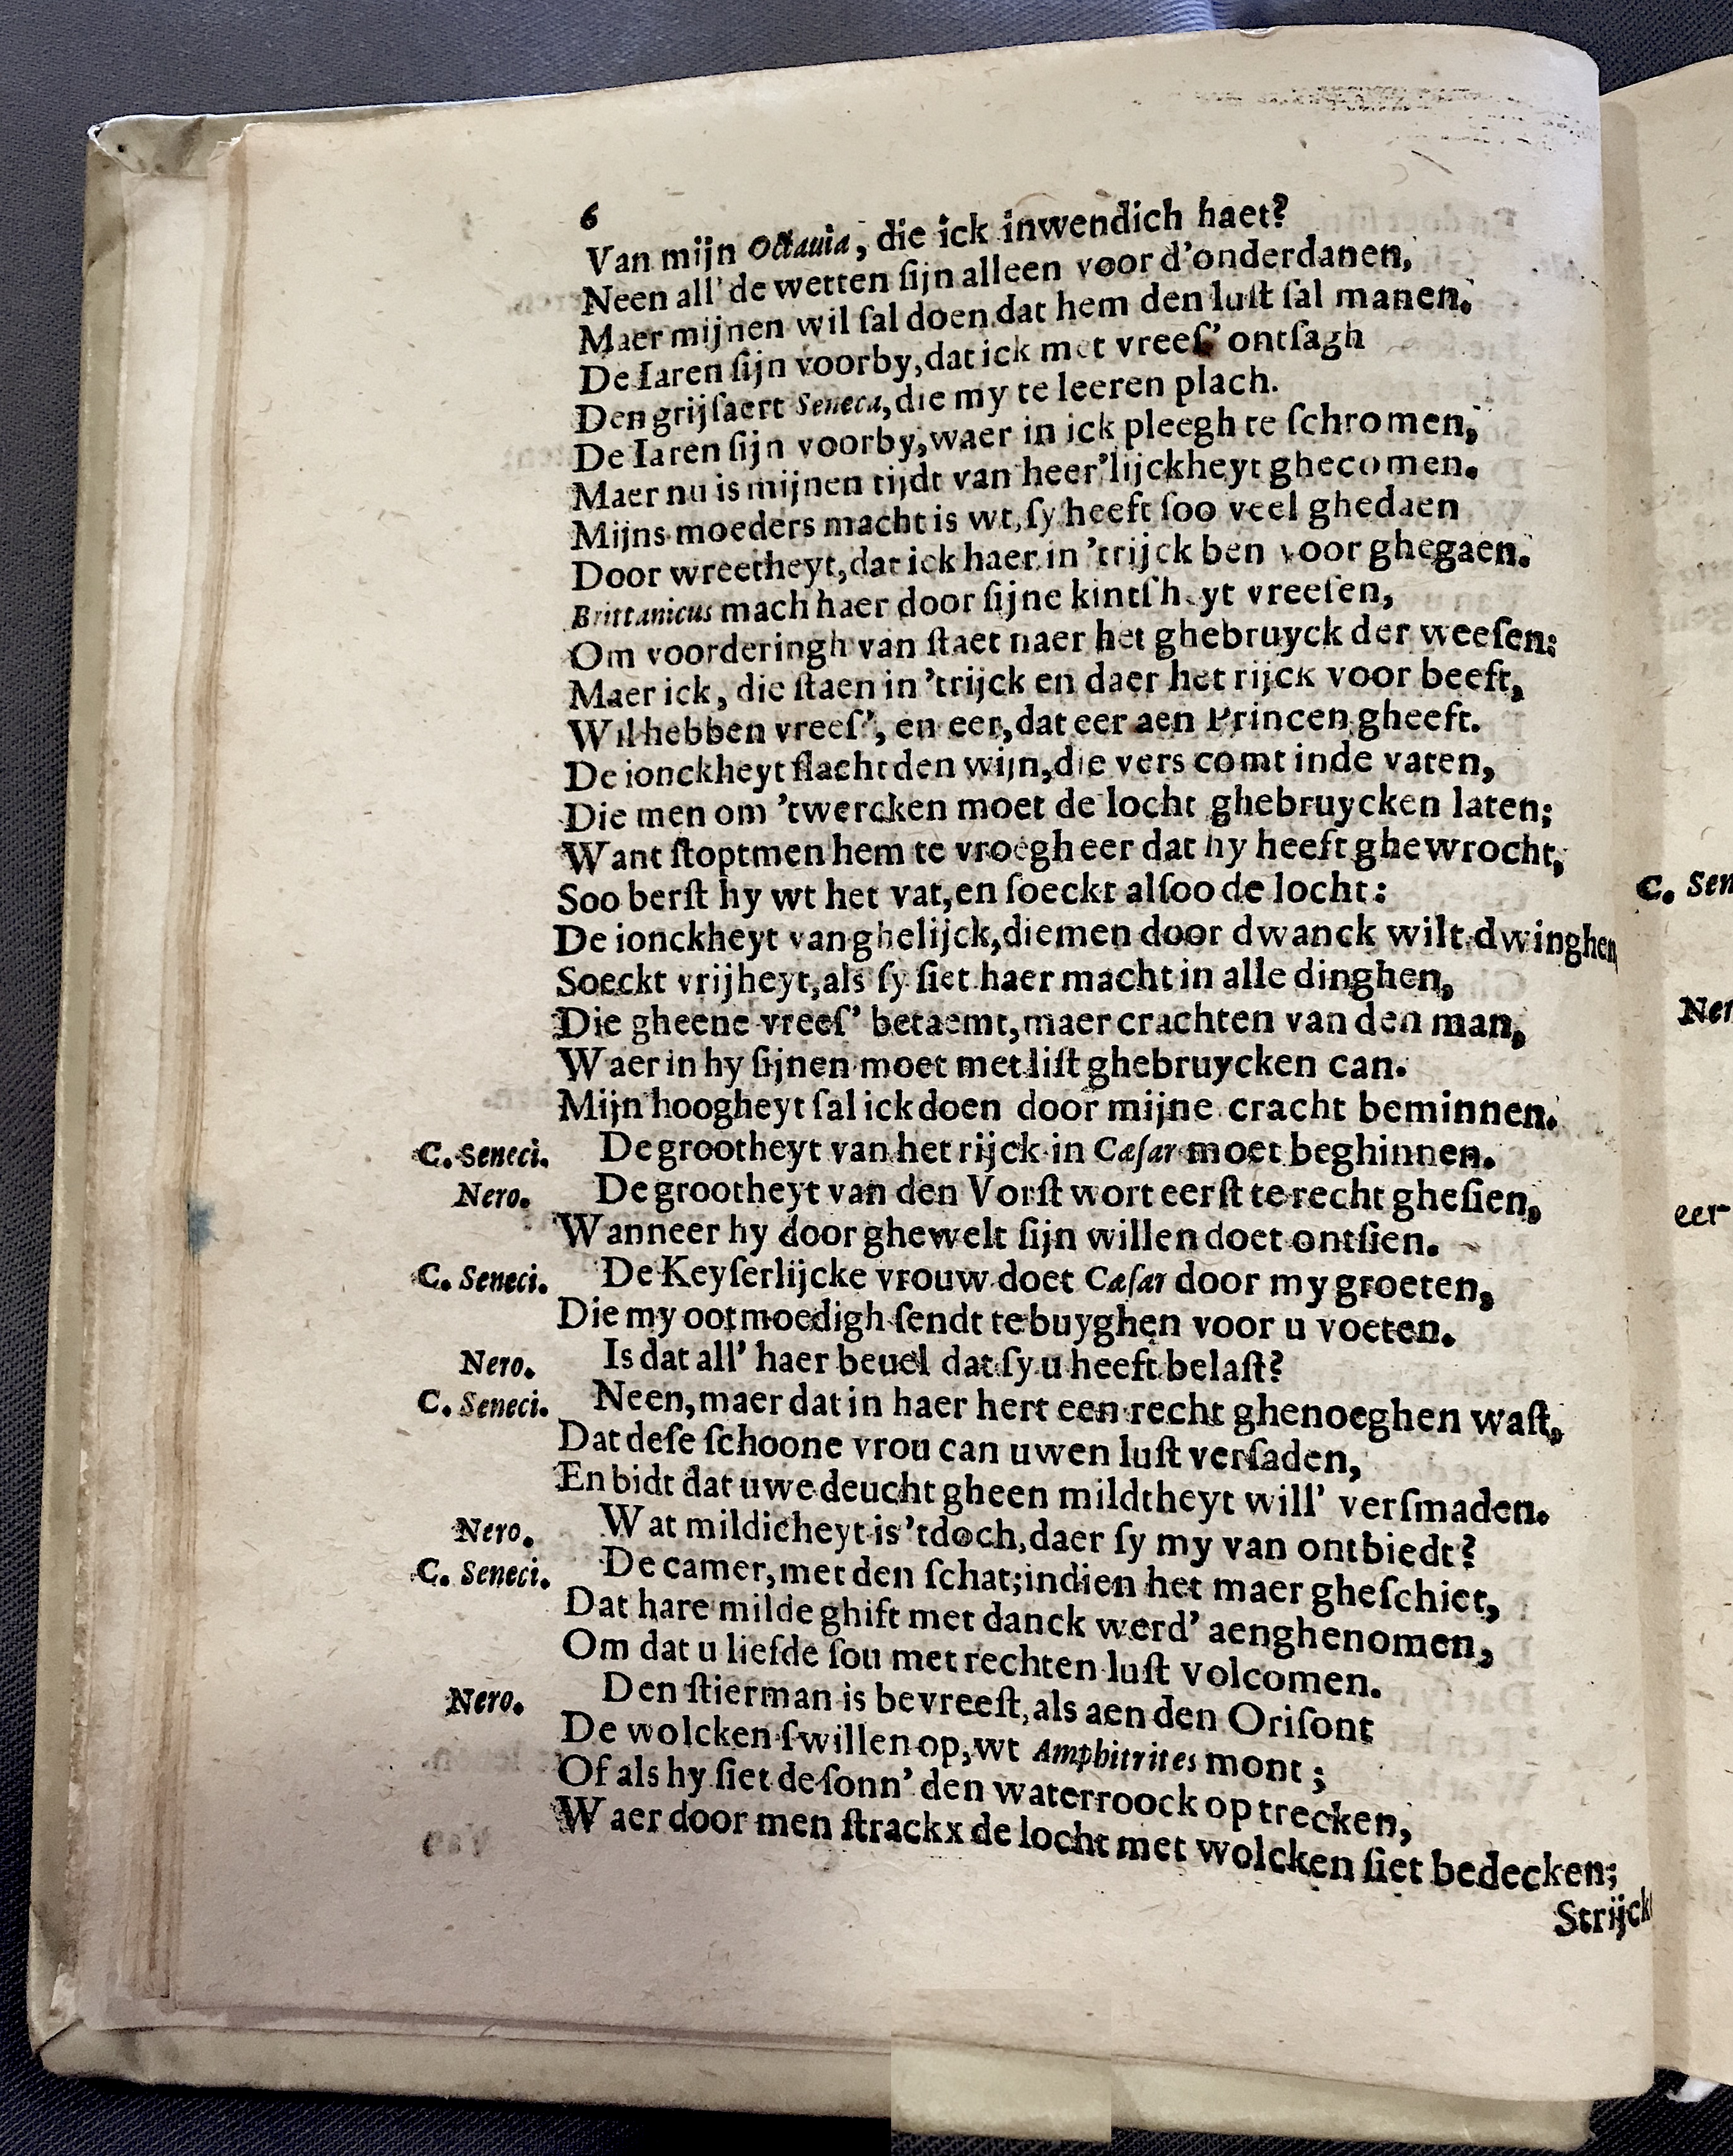 6
Van mijn Octauia, die ick inwendich haet?
Neen all' de wetten ſijn alleen voor d'onderdanen,
Maer mijnen wil ſal doen dat hem den luſt ſal manen.
De Iaren ſijn voorby, dat ick met vreeſ' ontſagh
Den grijſaert Seneca, die my te leeren plach.
De Iaren ſijn voorby, waer in ick pleegh te ſchromen,
Maer nu is mijnen tijdt van heer'lijckheyt ghecomen.
Mijns moeders macht is wt, ſy heeft ſoo veel ghedaen
Door wreetheyt, dat ick haer in 'trijck ben voor ghegaen.
Brittanicus mach haer door ſijne kintſheyt vreeſen,
Om voorderingh van ſtaet naer het ghebruyck der weeſen:
Maer ick, die ſtaen in 'trijck en daer het rijck voor beeft,
Wil hebben vreeſ', en eer, dat eer aen Princen gheeft.
De ionckheyt ſlacht den wijn, die vers comt inde vaten,
Die men om 'twercken moet de locht ghebruycken laten;
Want ſtoptmen hem te vroegh eer dat hy heeft ghewrocht,
Soo berſt hy wt het vat, en ſoeckt alſoo de locht:
De ionckheyt van ghelijck, diemen door dwanck wilt dwinghen
Soeckt vrijheyt, als ſy ſiet haer macht in alle dinghen,
Die gheene vreeſ' betaemt, maer crachten van den man,
Waer in hy ſijnen moet met liſt ghebruycken can.
Mijn hoogheyt ſal ick doen door mijne cracht beminnen.
C. Seneci. De grootheyt van het rijck in Cæſar moet beghinnen.
Nero. De grootheyt van den Vorſt wort eerſt te recht gheſien,
Wanneer hy door ghewelt ſijn willen doet ontſien.
C. Seneci. De Keyſerlijcke vrouw doet Cæſar door my groeten,
Die my ootmoedigh ſendt te buyghen voor u voeten.
Nero. Is dat all' haer beuel dat ſy u heeft belaſt?
C. Seneci. Neen, maer dat in haer hert een recht ghenoeghen waſt,
Dat deſe ſchoone vrou can uwen luſt verſaden,
En bidt dat uwe deucht gheen mildtheyt will' verſmaden.
Nero. Wat mildicheyt is 'tdoch, daer ſy my van ontbiedt?
C. Seneci. De camer, met den ſchat; indien het maer gheſchiet,
Dat hare milde ghift met danck werd' aenghenomen,
Om dat u liefde ſou met rechten luſt volcomen.
Nero. Den ſtierman is bevreeſt, als aen den Oriſont
De wolcken ſwillen op, wt Amphitrites mont;
Of als hy ſiet de ſonn' den waterroock op trecken,
Waer door men ſtrackx de locht met wolcken ſiet bedecken;
Strijck
C. Sen
Ner
eer